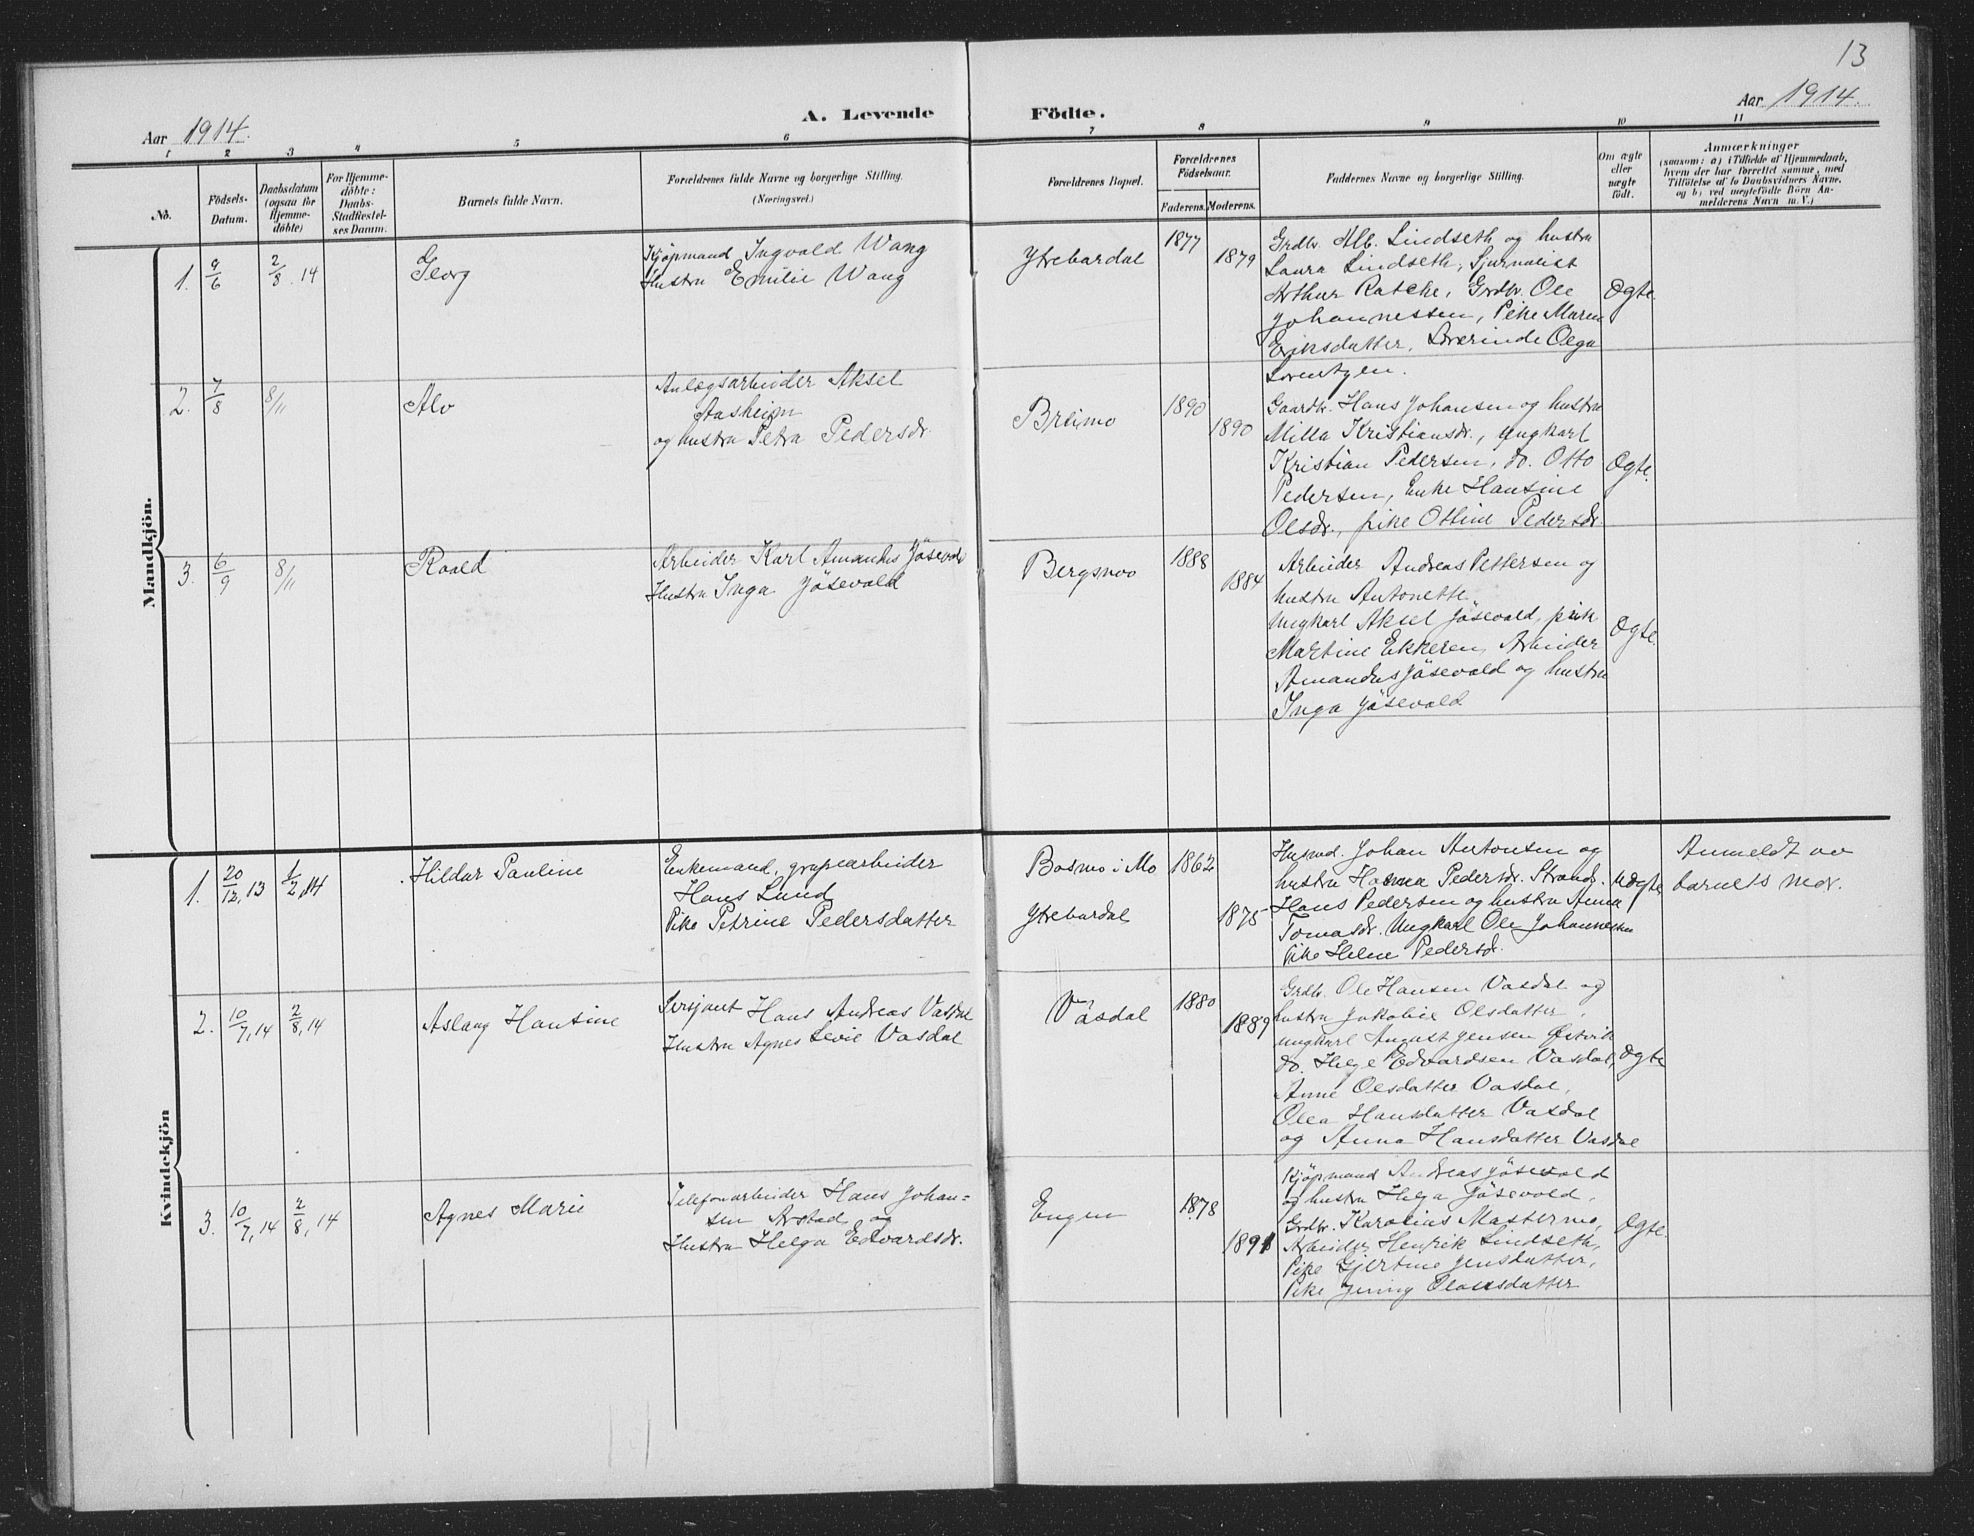 13
Aar 1914.
A. Levende
Födte.
Aar 1914.
1 2 3 4 5 6 7 8 9 10 11
No.
Födsels-
Datum.
Daabsdatum
(ogsaa for
Hjemme-
döbte)
For Hjemme-
döbte:
Daabs-
Stadfæstel-
ses Datum.
Barnets fulde Navn.
Forældrenes fulde Navne og borgerlige Stilling.
(Næringsvei.)
Forældrenes Bopæl.
Forældrenes
Födselsaar.
Faderens.
Moderens.
Faddernes Navne og borgerlige Stilling.
Om ægte
eller
uægte
födt.
Anmærkninger
(saasom: a) i Tilfælde af Hjemmedaab,
hvem der har forrettet samme, med
Tilföielse af to Daabsvidners Navne,
og b) ved uægtefödte Börn An-
melderens Navn m. V.)
Mandkjön.
1.
9/6
2/8. 14
Georg
Kjøpmand Ingvald Wang
Hustru Emilie Wang
Ytrebardal
1877
1879
Grdbr. Alb. Lindseth og hustru
Laura Lindseth, Sjurnalist
Arthur Ratche, Grdbr. Ole
Johannessen, Pike Maren
Eriksdatter, Lærerinde Olga
Lorentzen.
Ægte.
2.
7/8
8/11
Alv
Anlægsarbeider Aksel
Aasheim
og hustru Petra Pedersdr.
Breimo
1890
1890
Gaardbr. Hans Johansen og hustru
Milla Kristiansdr., ungkarl
Kristian Pedersen, do. Otto
Pedersen, Enke Hansine
Olsdr., pike Ottine Pedersdr.
Ægte.
3.
6/9
8/11
Roald
Arbeider Karl Amandus Jøsevold
Hustru Inga Jøsevold
Bergsnov
1888
1884
Arbeider Andreas Pettersen og
hustru Antonette
Ungkarl Aksel Jøsevold, pike
Martine Ekkeren, Arbeider
Amandus Jøsevold og hustru
Inga Jøsevold
Ægte.
Kvindekjön
1.
20/12, 13
1/2, 14
Hildur Pauline
Enkemand, grupearbeider
Hans Lund
Pike Petrine Pedersdatter
Bosmo i Mo
Ytrebardal
1862
1875
Husmd. Johan Antonsen og
hustru Hanna Pedersdr. Strand.
Hans Pedersen og hustru Anna
Tomasdr. Ungkarl Ole Johannessen
Pike Helene Pedersdr.
Uægte
Anmeldt av
barnets mor.
2.
10/7, 14
2/8, 14
Aslaug Hansine
Sersjant Hans Andreas Vasdal
Hustru Agnes Levie Vasdal
Våsdal
1880
1889
Grdbr. Ole Hansen Vasdal og
hustru Jakobie Olsdatter,
ungkarl August Jensen Østvik
do. Helge Edvardsen Vasdal,
Anne Olsdatter Vasdal,
Olea Hansdatter Vasdal
og Anna Hansdatter Vasdal
Ægte
3.
10/7, 14
2/8, 14
Agnes Marie
Telefonarbeider Hans Johan=
sen Arstad og
Hustru Helga Edvardsdr.
Engen
1878
1891
Kjøpmand Andreas Jøsevold
og hustru Helga Jøsevold,
Grdbr. Karolius Mastermo,
Arbeider Henrik Lindseth,
Pike Gjertine Jensdatter,
Pike Jenny Olausdatter
Ægte.